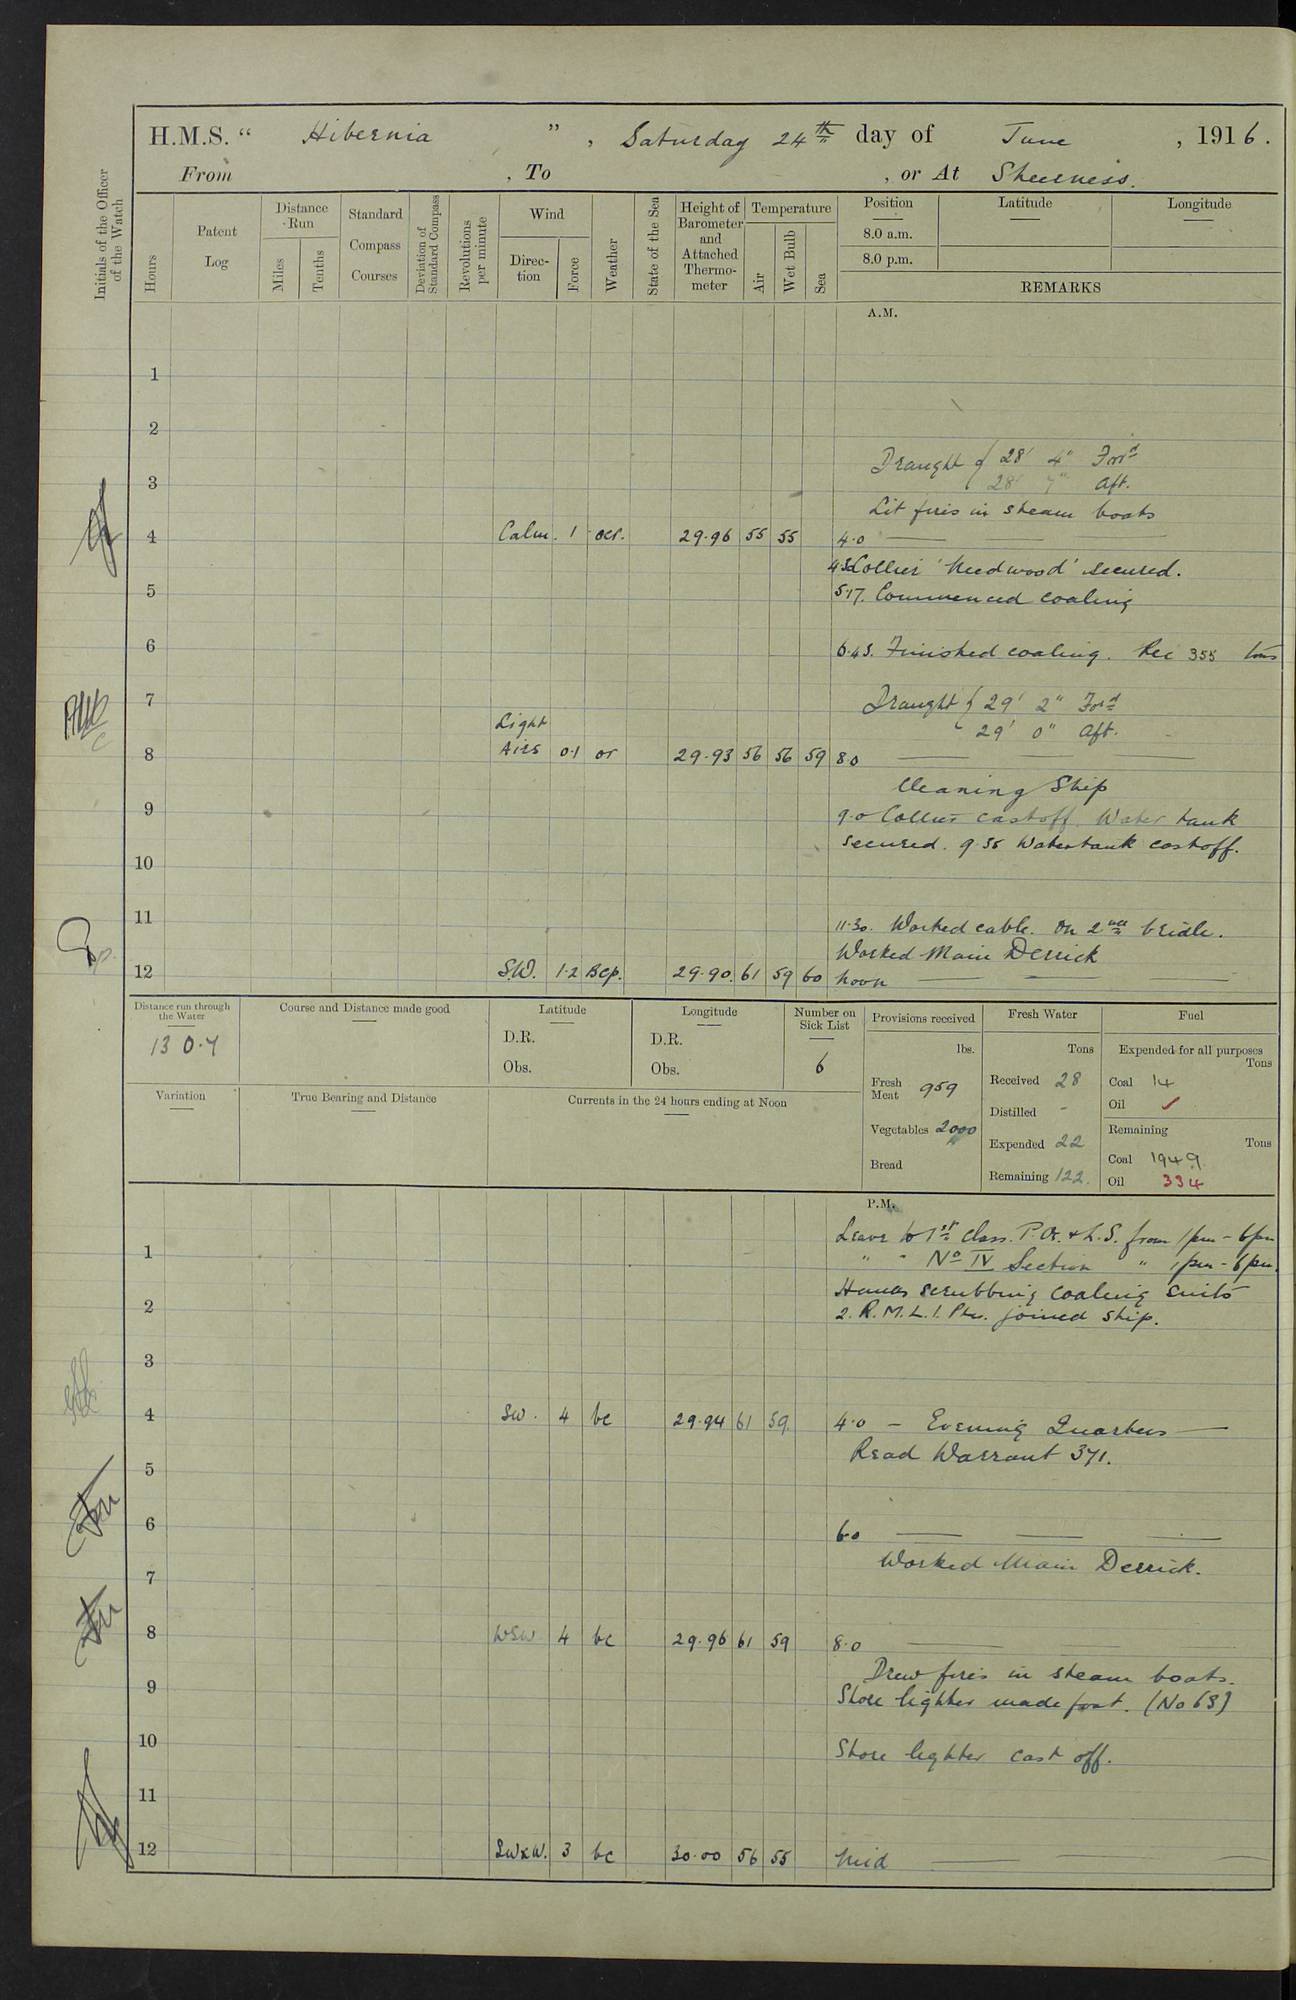 H.M.S. “ Hibernia ” , Saturday 24th day of June , 1916.
From , To , or At Sheerness.
Initials of the Officer of the Watch
Hours
Patent Log
Distance Run
Miles
Tenths
Standard Compass Courses
Deviation of Standard Compass
Revolutions per minute
Wind
Direction
Force
Weather
State of the Sea
Height of Barometer and Attached Thermometer
Temperature
Air
Wet Bulb
Sea
Position
Latitude
Longitude
8.0 a.m.
8.0 p.m.
REMARKS
A.M.
1
2
Draught { 28' 4" For'd
3
28' 7" Aft.
Lit fires in steam boats
4 Calm. 1 ocr. 29.96 55 55 4.0
Collier 'Needwood' secured.
5 5.17. Commenced coaling
6 6.45. Finished coaling. Rec 355 tons
7 Draught { 29' 2" For'd
Light 29' 0" Aft.
8 Airs 0.1 or 29.93 56 56 59 8.0
Cleaning Ship
9 9.0 Collier cast off. Water tank
secured. 9.55 Water tank cast off.
10
11 11.30. Worked cable. On 2nd bridle.
Worked Main Derrick
12 S.W. 1.2 Bcp. 29.90. 61 59 60 Noon
Distance run through the Water
13 0.7
Course and Distance made good
Latitude
D.R.
Obs.
Longitude
D.R.
Obs.
Number on Sick List
6
Variation
True Bearing and Distance
Currents in the 24 hours ending at Noon
Provisions received
lbs.
Fresh Meat 959
Vegetables 2000
Bread
Fresh Water
Tons
Received 28
Distilled -
Expended 22
Remaining 122.
Fuel
Expended for all purposes
Tons
Coal 14
Oil ✓
Remaining
Tons
Coal 1949
Oil 334
P.M.
Leave to 1st Class. P.Os. & L.S. from 1pm - 6pm
1 " " No IV Section " 1pm - 6pm.
Hands scrubbing coaling suits
2 2. R.M.L.I. Ptes. joined ship.
3
4 SW. 4 bc 29.94 61 59. 4.0 - Evening Quarters
Read Warrant 371.
5
6 6.0
Worked Main Derrick.
7
8 WSW 4 bc 29.96 61 59 8.0
Drew fires in steam boats.
9 Store lighter made fast. (No 68)
10 Store lighter cast off.
11
12 SWxW. 3 bc 30.00 56 55 Mid